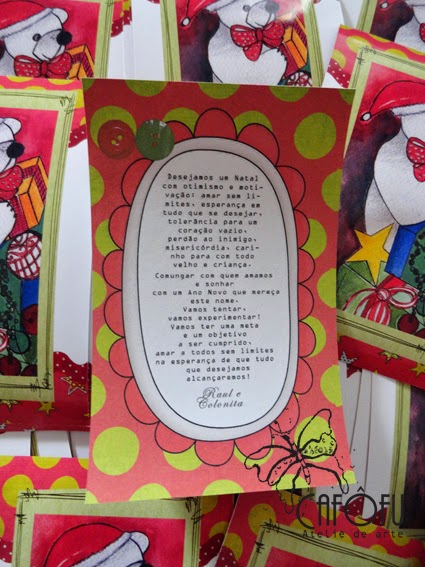 Desejamos um Natal
com otimismo e moti-
vação: amar sem li-
mites, esperança em
tudo que se desejar,
tolerância para um
coração vazio,
perdão ao inimigo,
misericórdia, cari-
nho para com todo
velho e criança.
Comungar com quem amamos
e sonhar
com um Ano Novo que mereça
este nome.
Vamos tentar,
vamos experimentar!
Vamos ter uma meta
e um objetivo
a ser cumprido,
amar a todos sem limites
na esperança de que tudo
que desejamos
alcançaremos!
Raul e
Colonita
CAFÔFU
Atelie de arte